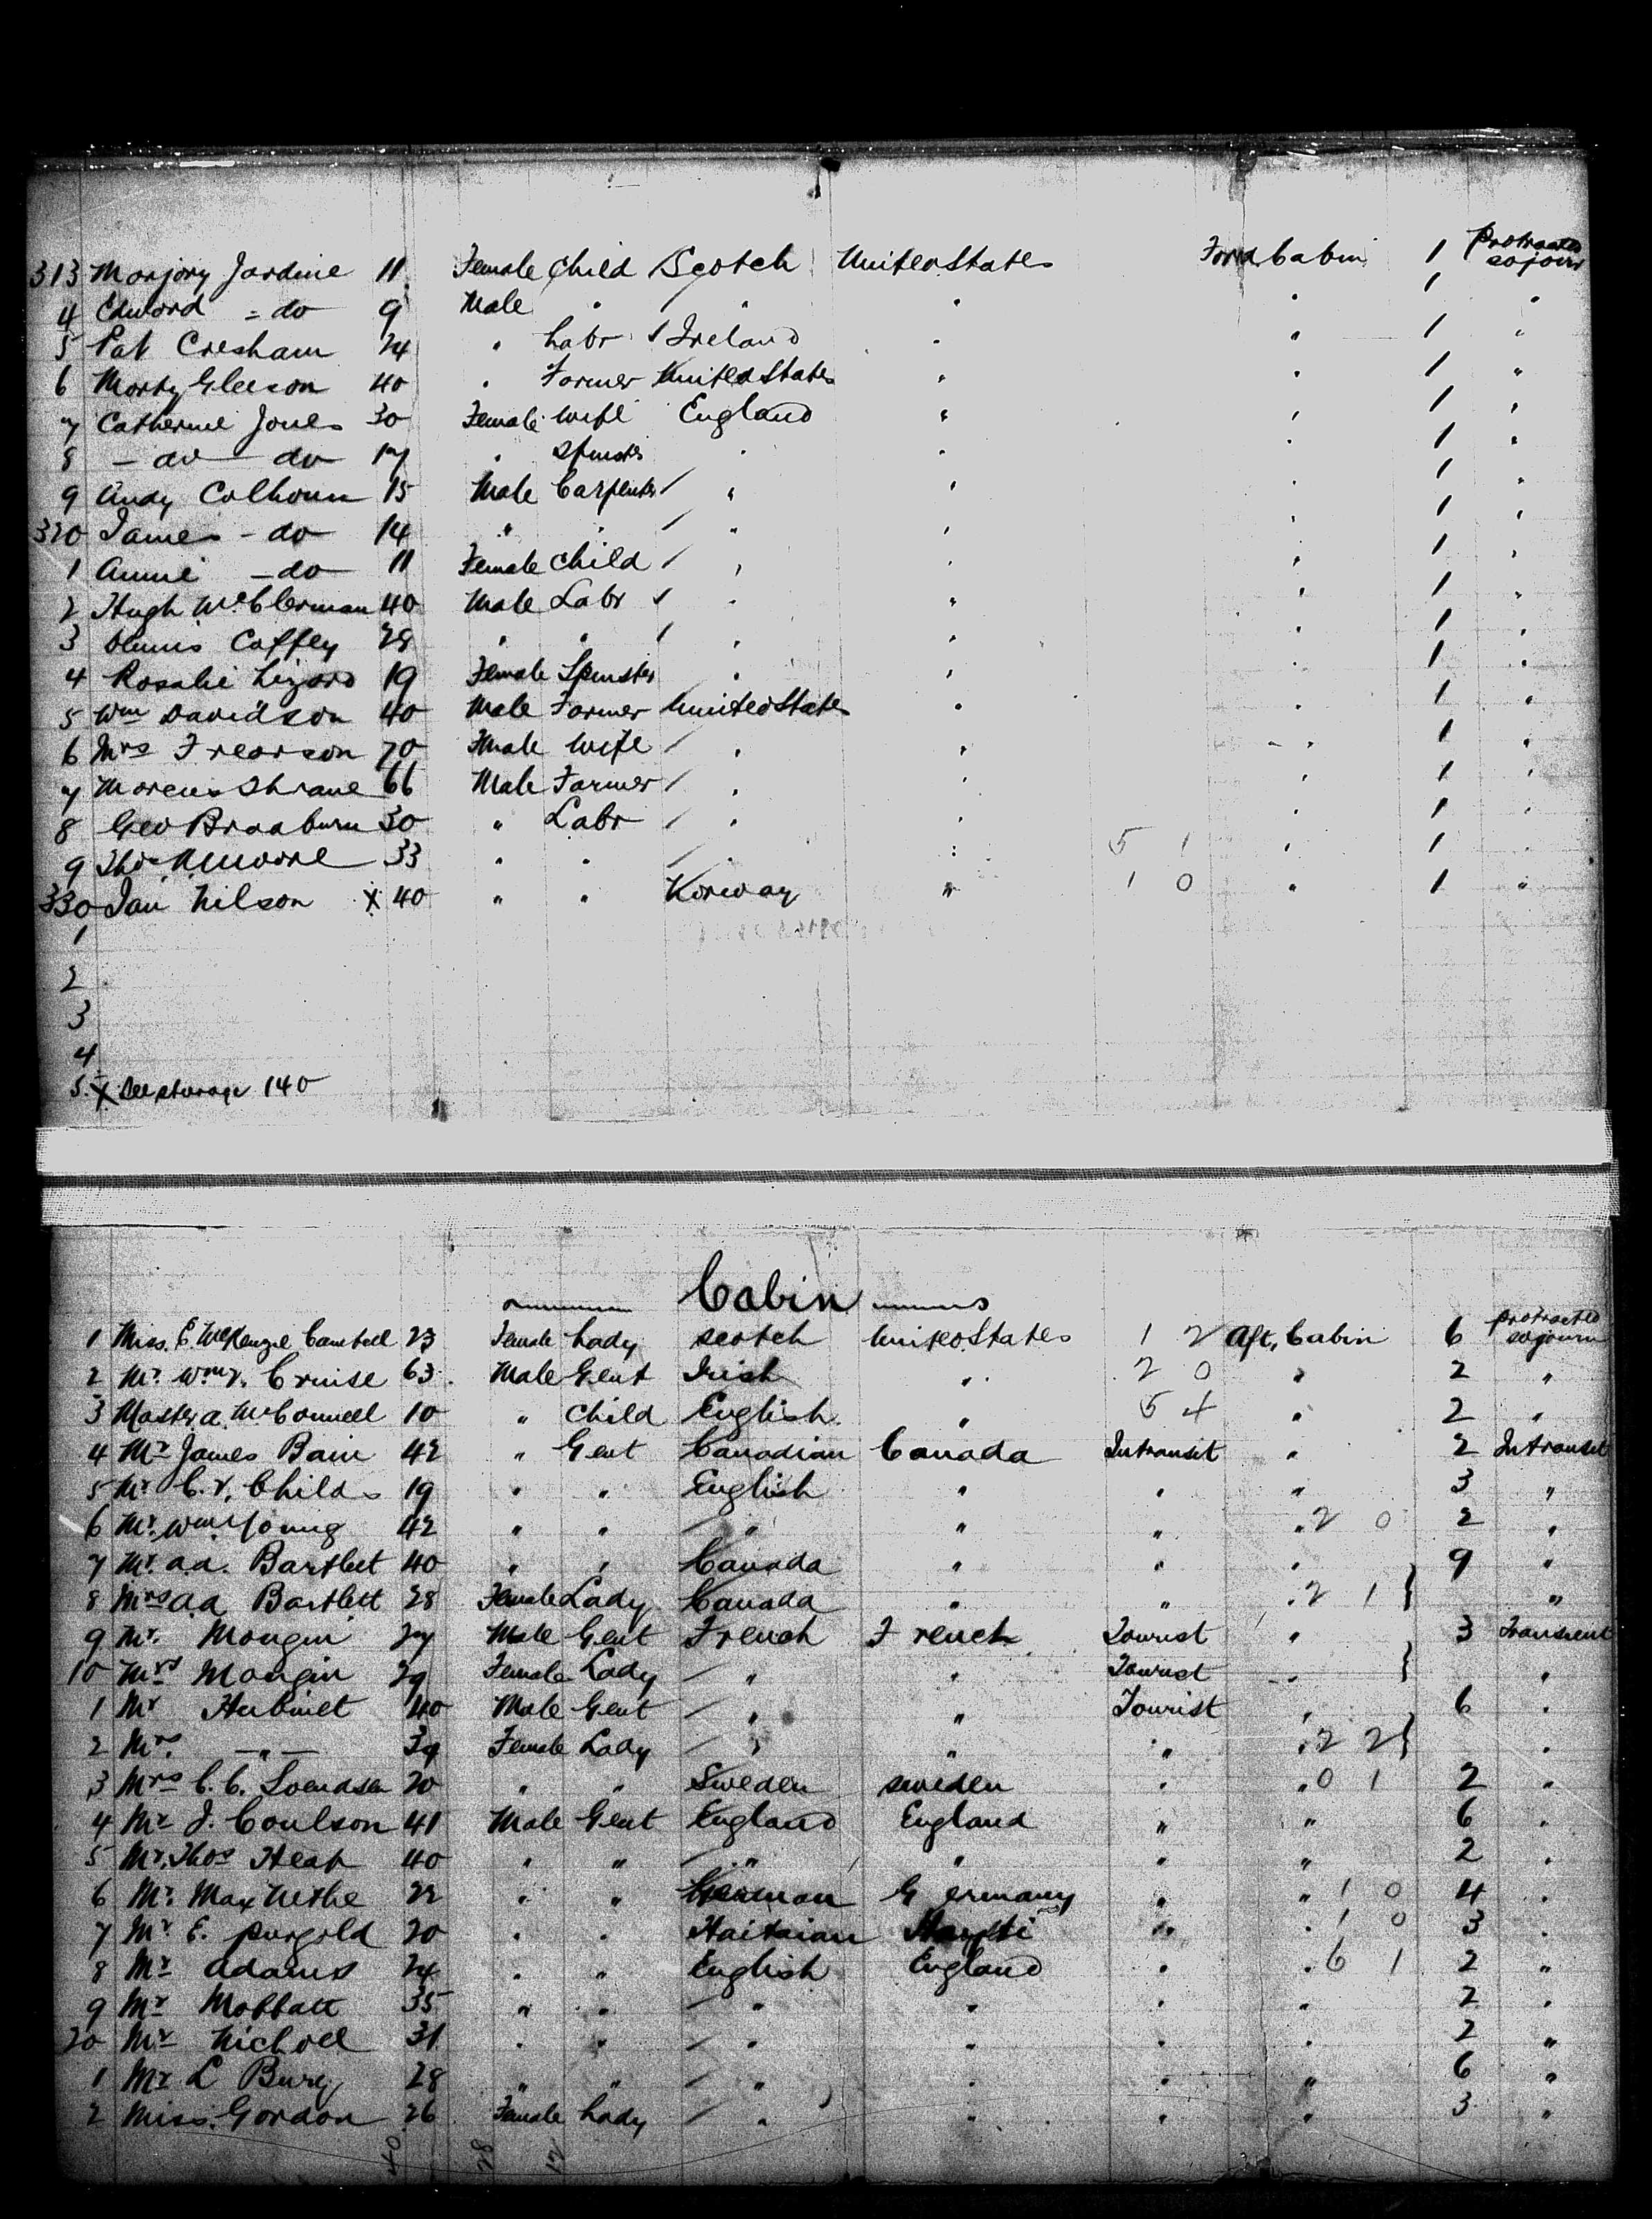 313 Marjory Jardine 11 Female Child Scotch United States Forwd Cabin 1 Protracted sojourn
4 Edward = do 9 Male " " " " 1 "
5 Pat Cresham 24 " Labr Ireland " " 1 "
6 Morty Gleeson 40 " Farmer United States " " 1 "
7 Catherine Jones 30 Female Wife England " " 1 "
8 - do - do 17 " Spinster " " " 1 "
9 Andy Colhoun 15 Male Carpenter / " " " 1 "
320 James - do 14 " " / " " " 1 "
1 Annie - do 11 Female Child / " " " 1 "
2 Hugh 40 Male Labr " " " 1 "
3 Dennis Caffey 28 " " / " " " 1 "
4 Rosalie 19 Female Spinster " " " 1 "
5 Wm Davidson 40 Male Farmer United States " " 1 "
6 Mrs Frearson 70 Female Wife / " " " 1 "
7 Marcus Thrane 66 Male Farmer / " " " 1 "
8 Geo Bradburn 30 " Labr / " " " 1 "
9 Thos 33 " " / " " 5 1 " 1 "
330 Jan Nilson X 40 " " Norway " 1 0 " 1 "
1
2
3
4
5 X See steerage 140
Cabin
1 Miss E. McKenzie Cambell 23 Female Lady Scotch United States 1 2 Aft, Cabin 6 protracted sojourn
2 Mr. Wm Cruise 63 Male Gent Irish " 2 0 " 2 "
3 Master A. McConnell 10 " Child English " 5 4 " 2 "
4 Mr James Bain 42 " Gent Canadian Canada Intransit " 2 Intransit
5 Mr C. V. Childs 19 " " English " " " 3 "
6 Mr. Wm Young 42 " " / " " " " 2 0 2 "
7 Mr. A.A. Bartlett 40 " " Canada " " " 9 "
8 Mrs A.A Bartlett 28 Female Lady Canada " " " 2 1 } "
9 Mr. Mongin 27 Male Gent French French Tourist " 3 Transient
10 Mrs Mongin 29 Female Lady / " " Tourist " } "
1 Mr Hubinet 40 Male Gent / " " Tourist " 6 "
2 Mrs. - " - 39 Female Lady / " " " " 2 2 } "
3 Mrs C. C. Svendsen 20 " " Sweden Sweden " " 0 1 2 "
4 Mr J. Coulson 41 Male Gent England England " " 6 "
5 Mr. Thos Heap 40 " " / " " " " 2 "
6 Mr. Max Nethe 22 " " German Germany " " 1 0 4 "
7 Mr E. Purgold 20 " " Haitaian Hayti " " 1 0 3 "
8 Mr Adams 24 " " English England " " 6 1 2 "
9 Mr Moffatt 35 " " / " " " " 2 "
20 Mr Nicholl 31 " " / " " " " 2 "
1 Mr L Burg 28 " " / " " " " 6 "
2 Miss Gordon 26 Female Lady / " " " " 3 "
40 28 12